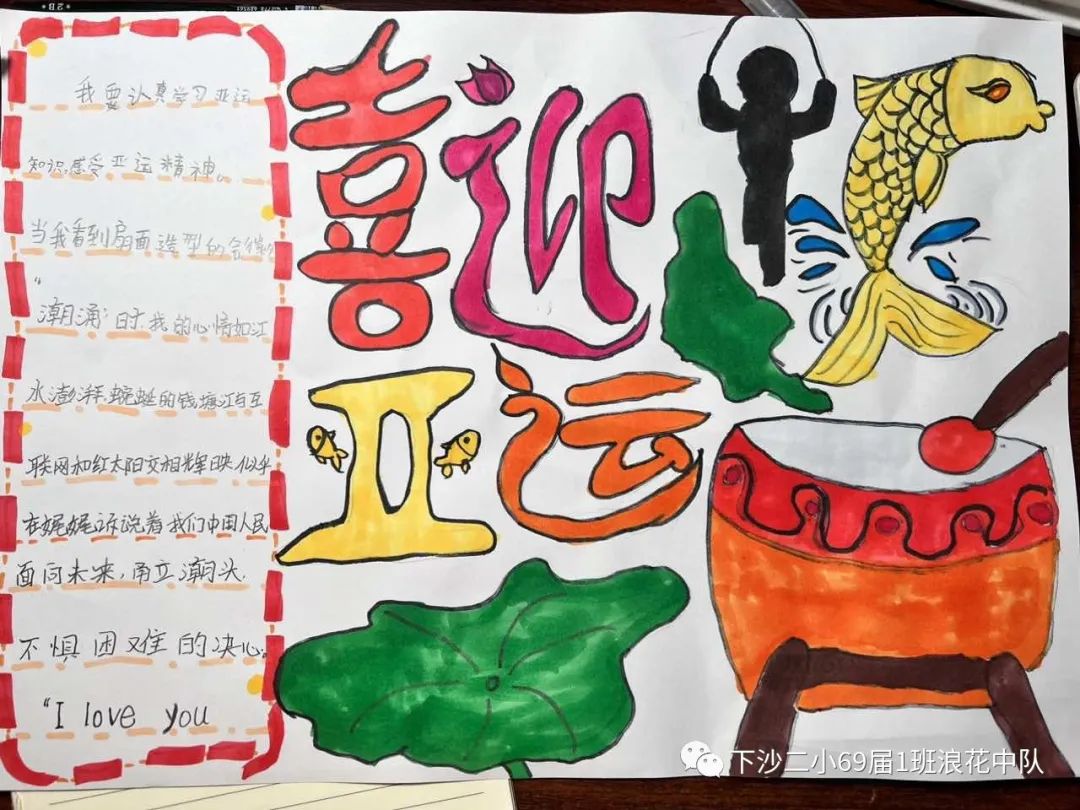 我要认真学习亚运
知识,感受亚运精神。
当我看到扇面造型的会徽
“潮涌”时,我的心情如江
水澎湃,蜿蜒的钱塘江与互
联网和红太阳交相辉映,似乎
在娓娓诉说着我们中国人民
面向未来,勇立潮头,
不惧困难的决心。
“I love you
喜迎
亚运
下沙二小69届1班浪花中队